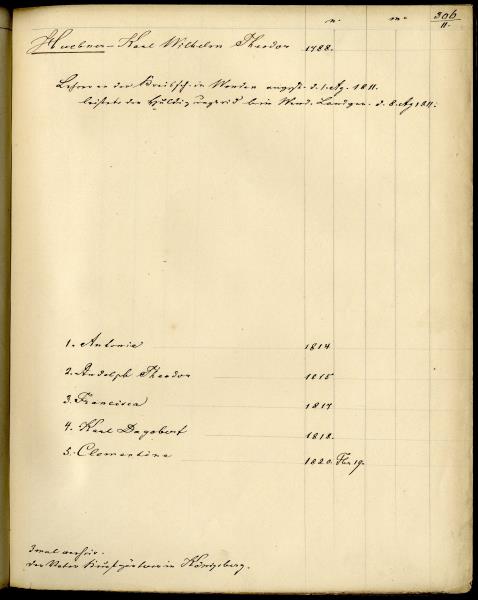 n. m. 306
II.
Huebner - Karl Wilhelm Theodor 1788.
Lehrer an der Kreissch. in Wenden angest. d. 1. Ag. 1811.
leistete den Huldigungseid beim Wend. Landger. d. 8. Ag 1811.
1. Antonie 1814
2. Rudolph Theodor 1815
3. Francisca 1817
4. Karl Dagobert 1818.
5. Clementine 1820. Fbr 19.
der Vater Kunstgärtner in Königsberg.